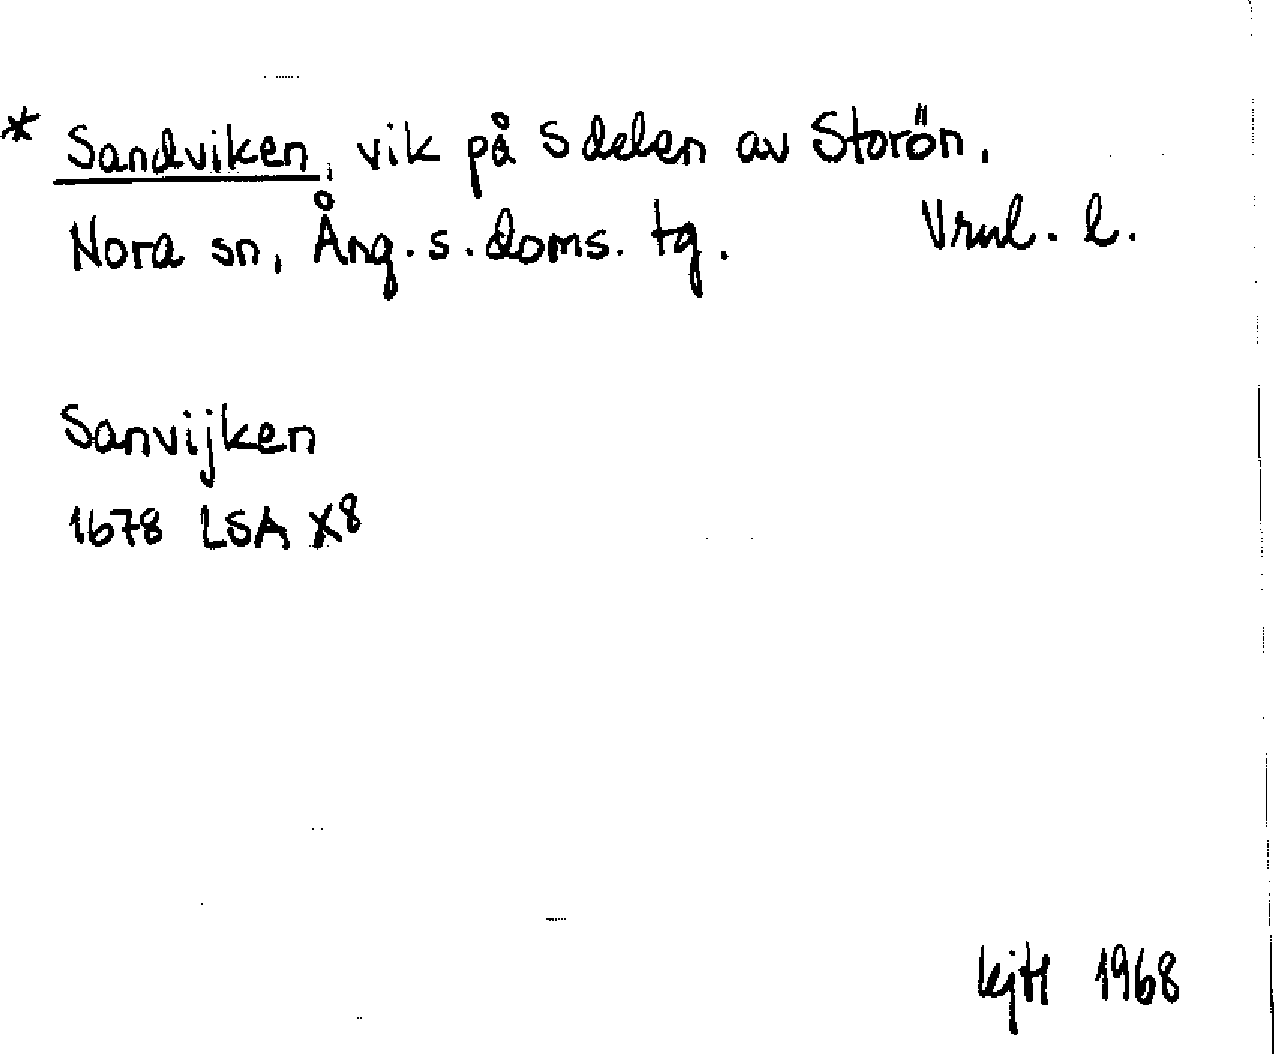 * Sandviken, vik på S delen av Storön,
Nora sn, Ång. s. doms. tg. Vrnl. l.
Sanvijken
1678 LSA X8
1968